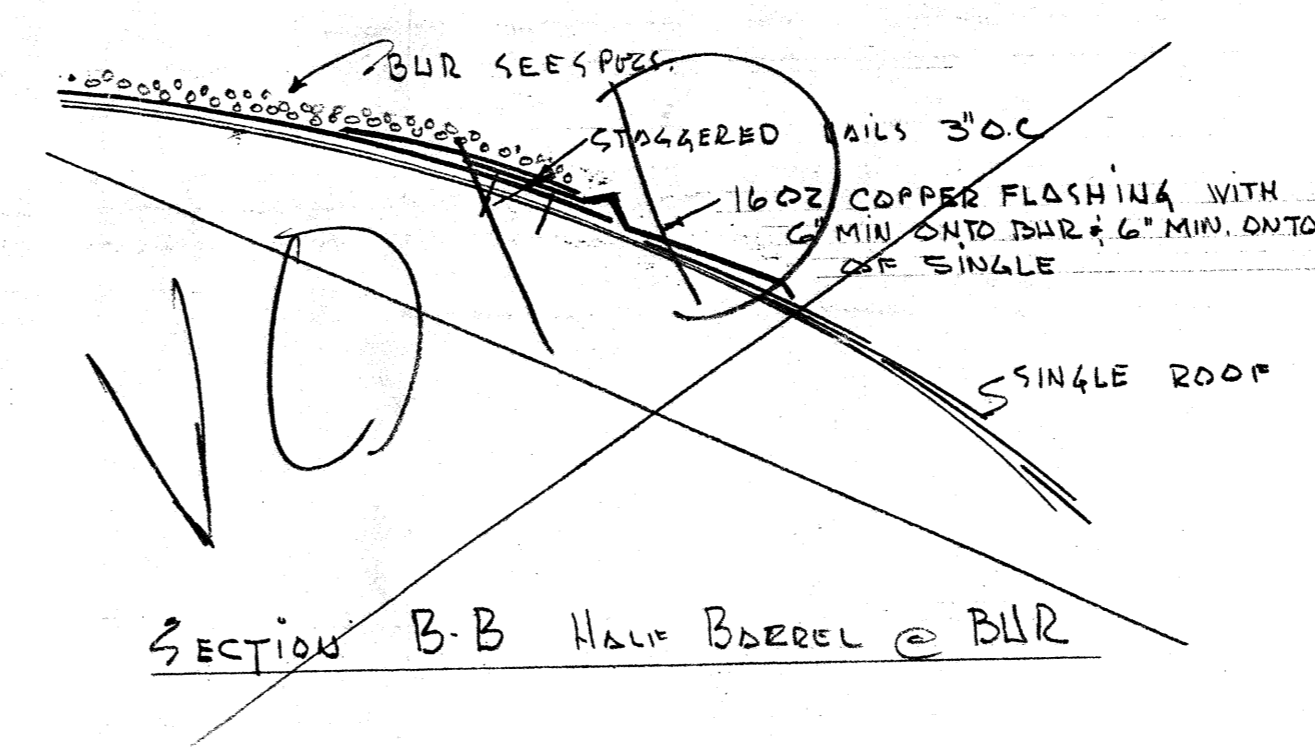 BUR SEE SPECS.
STAGGERED NAILS 3" O.C
16 OZ COPPER FLASHING WITH
6" MIN ONTO BUR & 6" MIN. ONTO
OF SINGLE
SINGLE ROOF
VOID
SECTION B-B HALF BARREL @ BUR